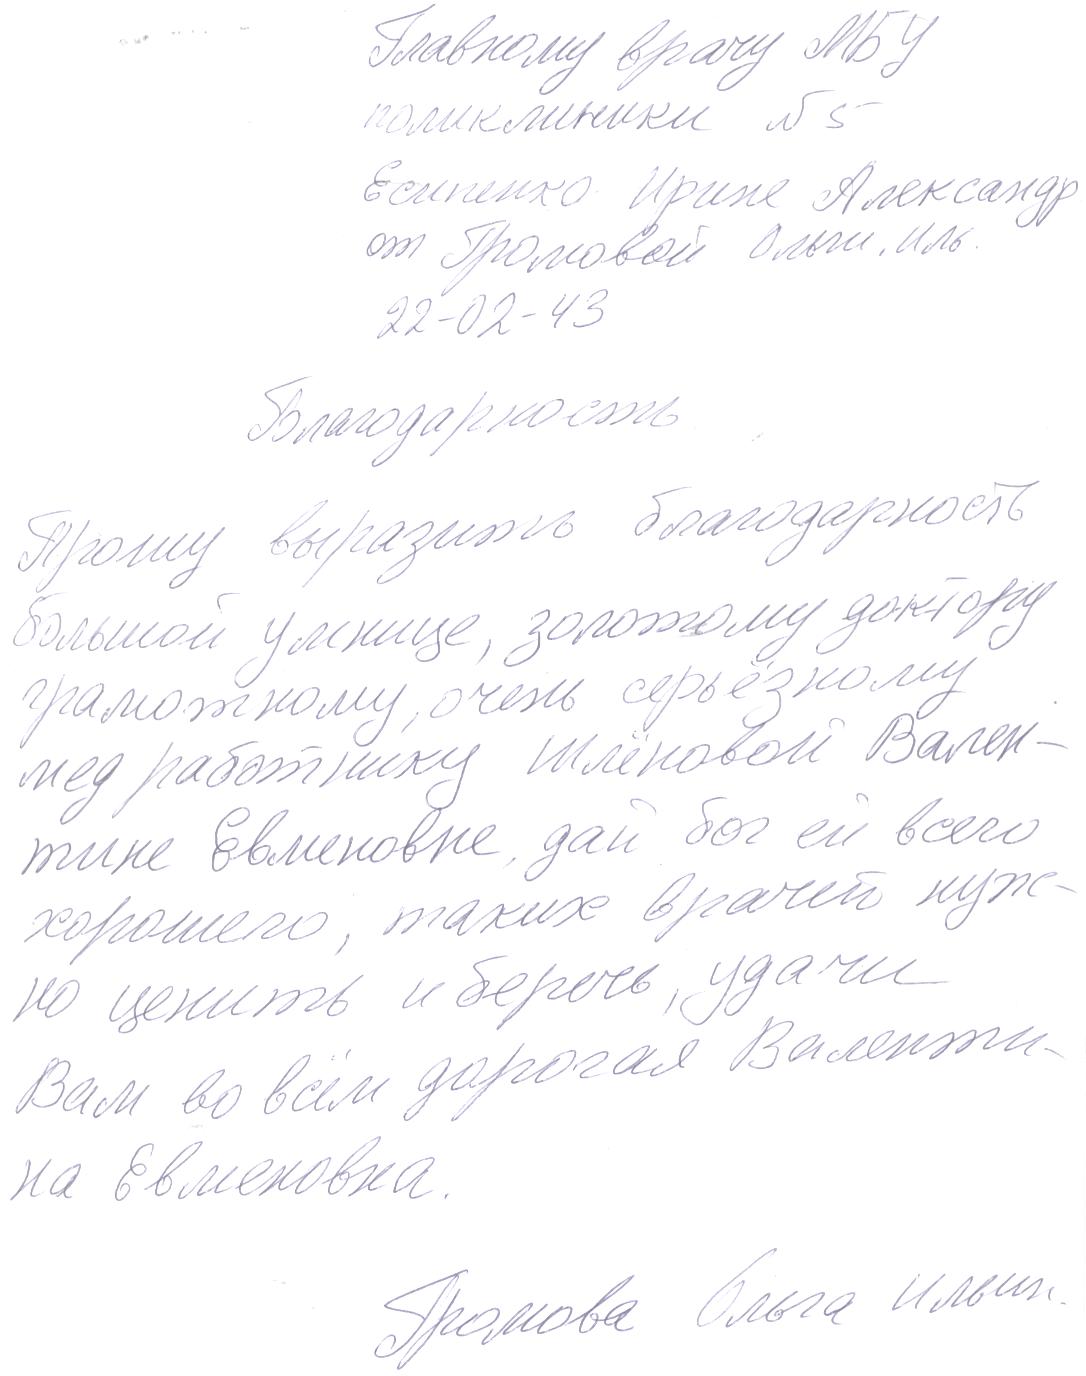 Главному врачу МБУ
поликлиники № 5
Есипенко Ирине Александр
от Громовой Ольги Иль.
22-02-43
Благодарность
Прошу выразить благодарность
большой умнице, золотому доктору
грамотному, очень серьёзному
мед работнику Шлёновой Вален-
тине Евменовне, дай бог ей всего
хорошего, таких врачей нуж-
но ценить и беречь, удачи
Вам во всём дорогая Валенти-
на Евменовна.
Громова Ольга Ильин.